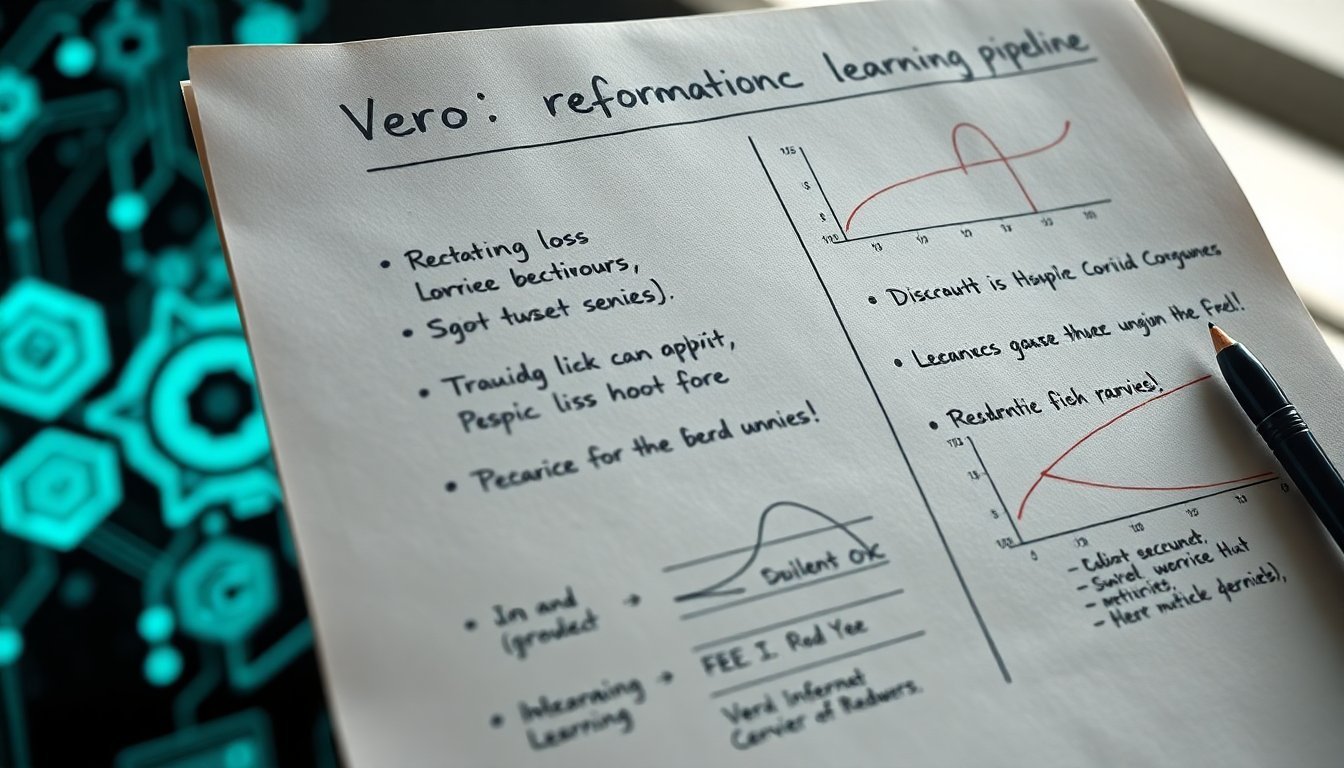 Vero: reformationc learning pipeline
• Rectating loss
Lorriee bectivours,
• Sgot tuset senies).
• Trauidg lick can appiit,
Pespic liss hoot fore
• Pecarice for the berd unnies!
• In and
(grodect →
Duilent OK
• Inlearning →
Learning
FEE I Rod Yee
Verd Infernet
Cervier of Redwers.
• Discroutt is Hsuple Coriid Corgwnes
• Lecanecs gause thuee ungiun the Fred!
• Resdrntie fich ranvies!
- Culist secaunct,
- Swirel worrice Hut
- metiriries,
- Hert mutick dernicts),